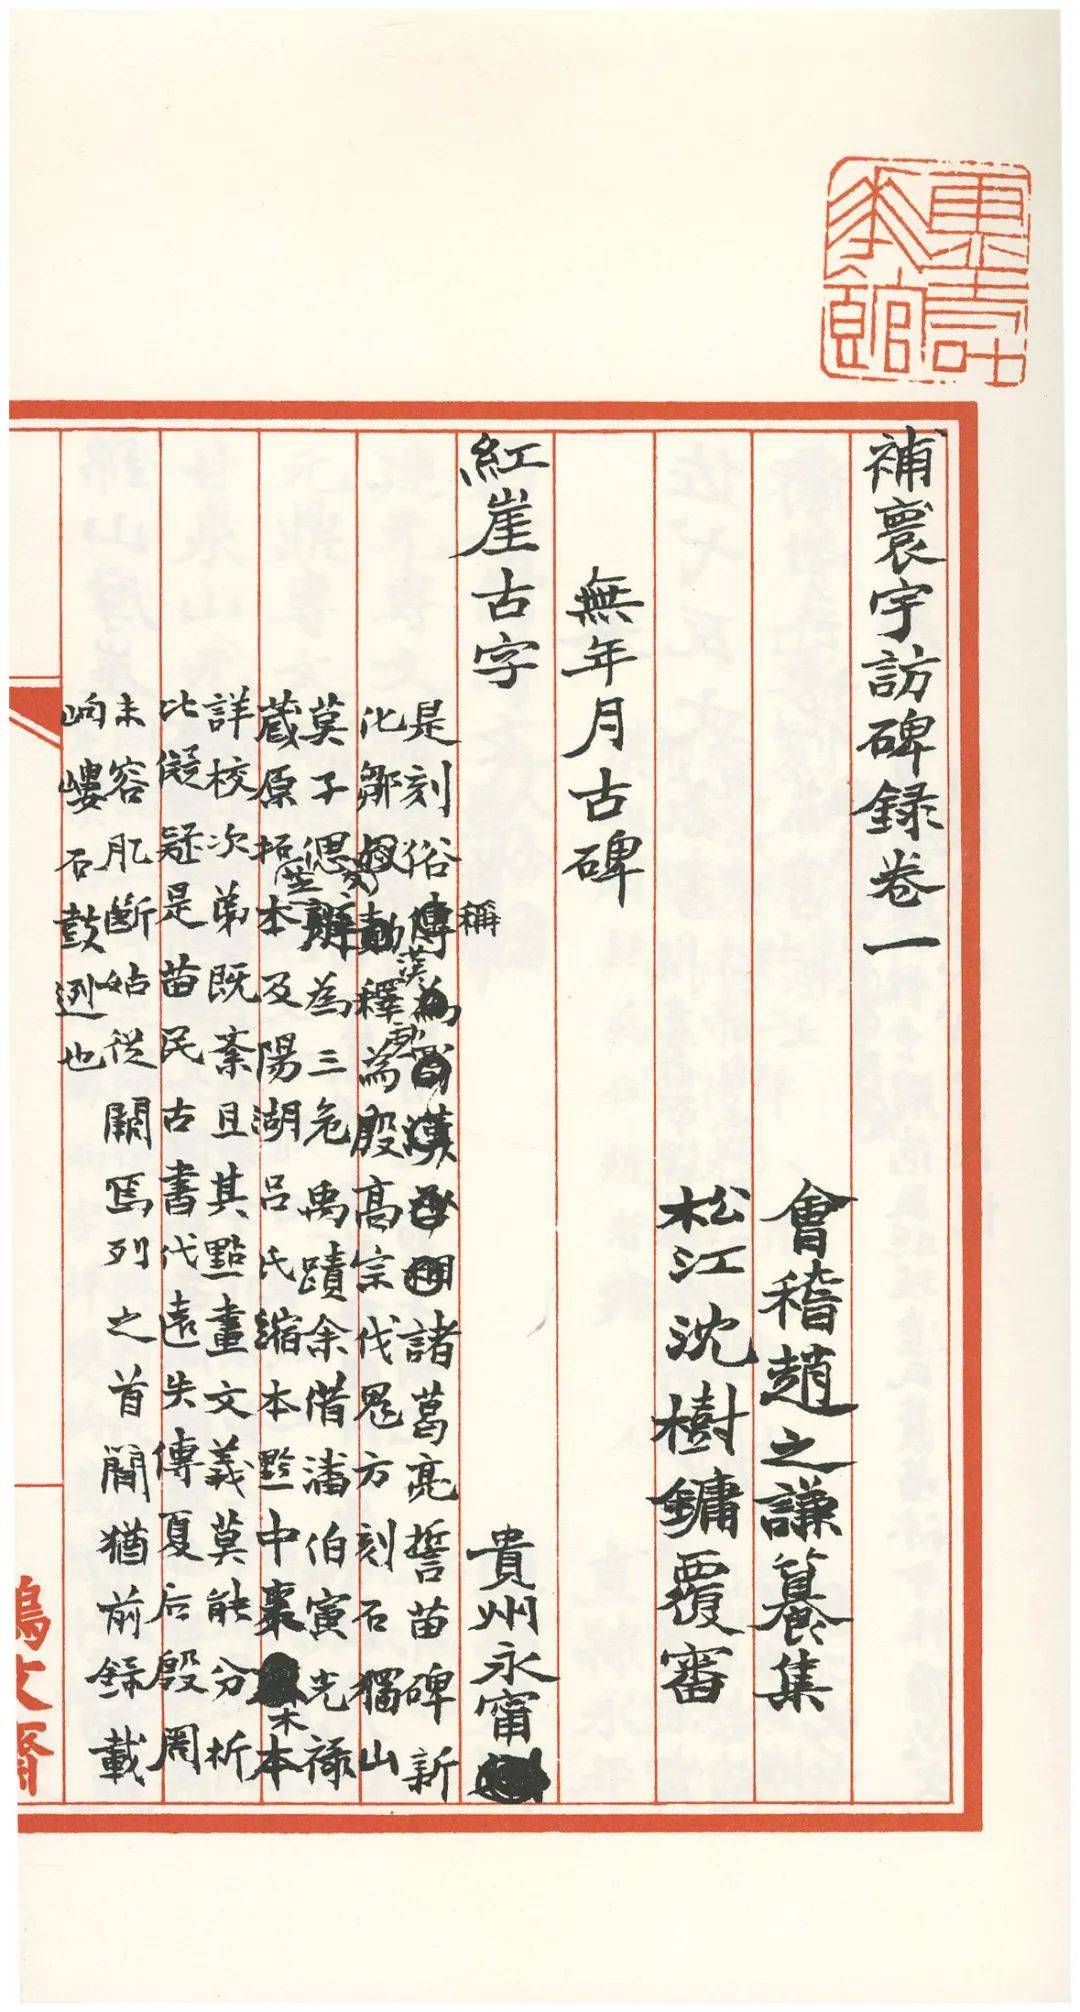 補寰宇訪碑錄卷一
會稽趙之謙纂集
松江沈樹鏞覆審
無年月古碑
紅崖古字
貴州永甯
稱
是刻俗傳為漢諸葛亮誓苗碑新
化鄒漢勛釋為殷高宗伐鬼方刻石獨山
莫子偲辨為三危禹蹟余借潘伯寅光祿
藏原拓本及陽湖呂氏縮本黔中棗木本
詳校次第既紊且其點畫文義莫能分析
比儗疑是苗民古書代遠失傳夏后殷周
未容肊斷姑從闕焉列之首簡猶前錄載
岣嶁石鼓迾也
文齋